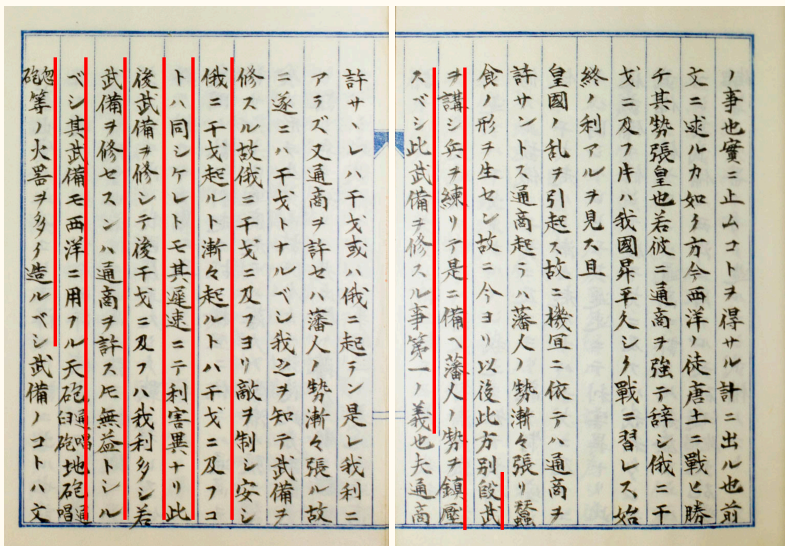 ノ事也實ニ止ムコトヲ得サル計ニ出ル也前
文ニ求ルカ如ク方今西洋ノ徒唐土ニ戰ヒ勝
チ其勢張皇也若彼ニ通商ヲ強テ辞シ俄ニ干
戈ニ及フ片ハ我國昇平久シク戰ニ習レス始
終ノ利アルヲ見ス且
皇國ノ乱ヲ引起ス故ニ機宜ニ依テハ通商ヲ
許サントス通商起ラハ藩人ノ勢漸々張リ蠶
食ノ形ヲ生セン故ニ今ヨリ以後此方別段武
ヲ講シ兵ヲ練リテ是ニ備ヘ藩人ノ勢ヲ鎮壓
スベシ此武備ヲ修スル事第一ノ義也夫通商
許サヽレハ干戈或ハ俄ニ起ラン是レ我利ニ
アラズ又通商ヲ許セハ藩人ノ勢漸々張ル故
ニ遂ニハ干戈トナルベシ我之ヲ知テ武備ヲ
修スル故俄ニ干戈ニ及フヨリ敵ヲ制シ安シ
俄ニ干戈起ルト漸々起ルトハ干戈ニ及フコ
トハ同シケレトモ其遲速ニテ利害異ナリ此
後武備ヲ修シテ後干戈ニ及フハ我利多シ若
武備ヲ修セスンハ通商ヲ許スモ無益トシル
ベシ其武備モ西洋ニ用フル天砲臼砲通唱地砲通唱
忽砲等ノ火器ヲ多ク造ルベシ武備ノコトハ文